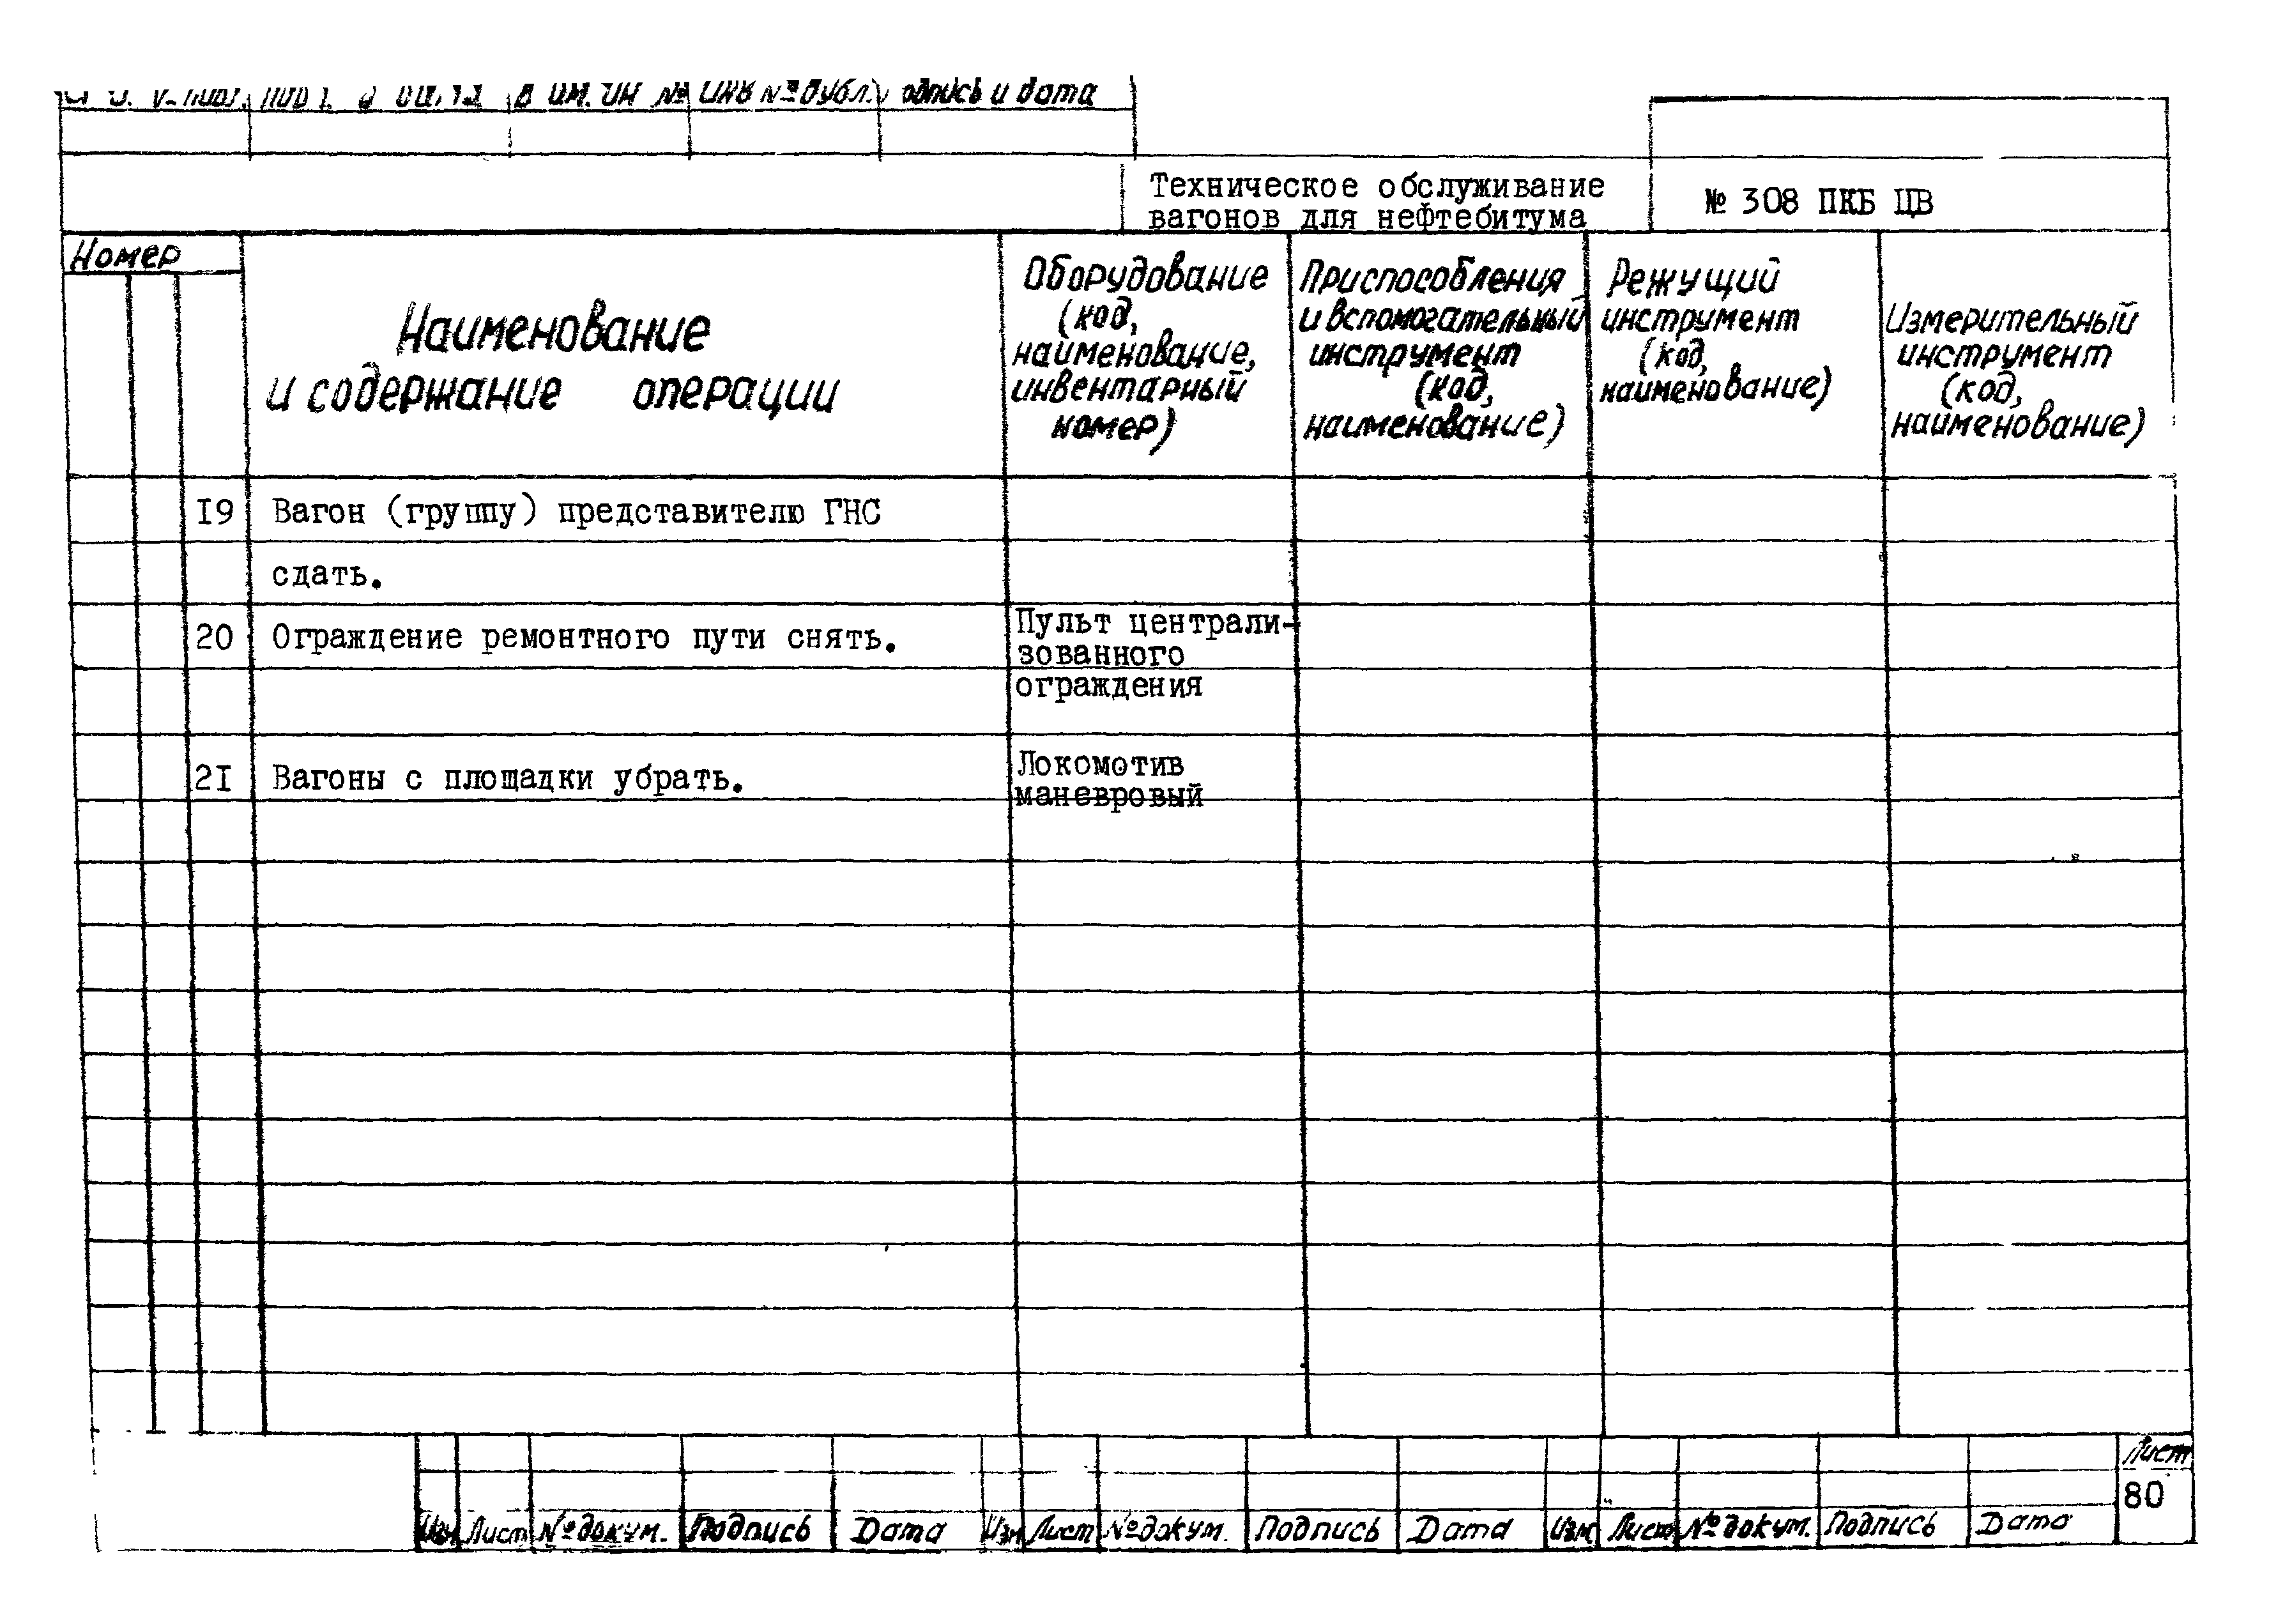 инв № дубл. одпись и дата
Техническое обслуживание
вагонов для нефтебитума
№ 308 ПКБ ЦВ
Номер
Наименование
и содержание операции
Оборудование
(код,
наименование,
инвентарный
номер)
Приспособления
и вспомогательный
инструмент
(код,
наименование)
Режущий
инструмент
(код,
наименование)
Измерительный
инструмент
(код,
наименование)
I9 Вагон (группу) представителю ГНС
сдать.
20 Ограждение ремонтного пути снять.
Пульт централи-
зованного
ограждения
2I Вагоны с площадки убрать.
Локомотив
маневровый
Лист
80
Изм Лист № докум. Подпись Дата Изм Лист № докум. Подпись Дата Изм Лист № докум. Подпись Дата